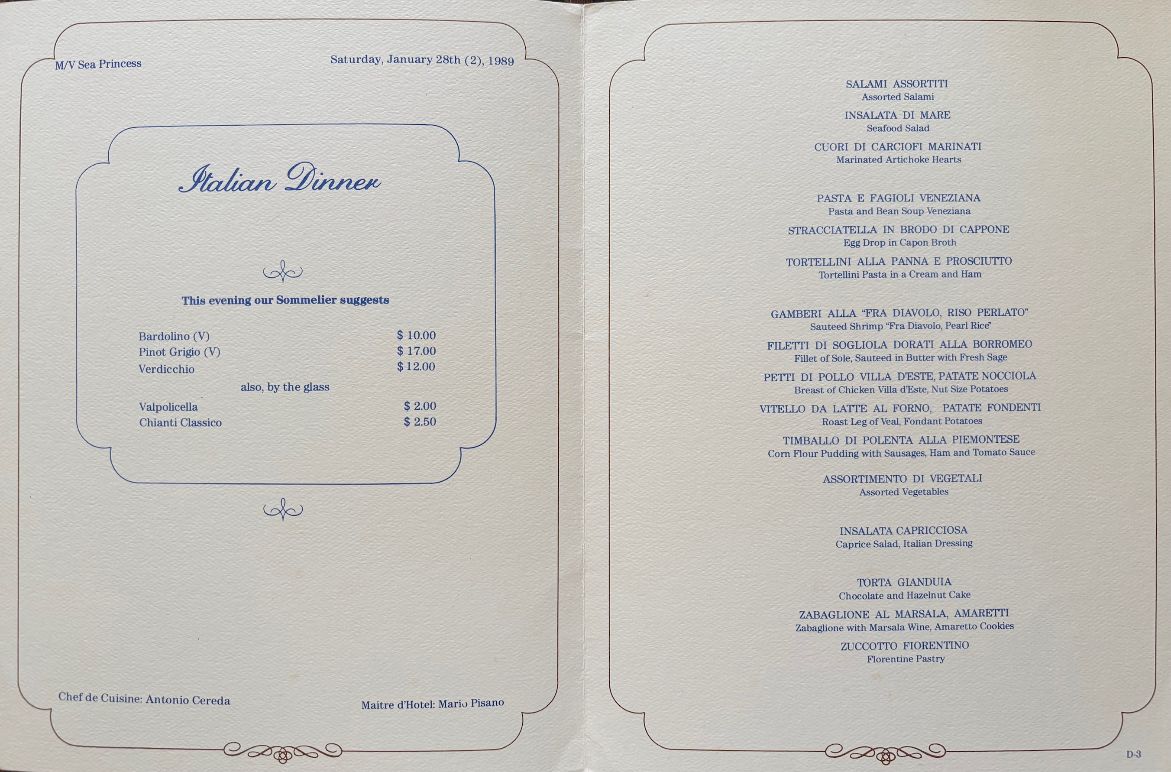 M/V Sea Princess
Saturday, January 28th (2), 1989
Italian Dinner
This evening our Sommelier suggests
Bardolino (V) $ 10.00
Pinot Grigio (V) $ 17.00
Verdicchio $ 12.00
also, by the glass
Valpolicella $ 2.00
Chianti Classico $ 2.50
Chef de Cuisine: Antonio Cereda
Maitre d'Hotel: Mario Pisano
SALAMI ASSORTITI
Assorted Salami
INSALATA DI MARE
Seafood Salad
CUORI DI CARCIOFI MARINATI
Marinated Artichoke Hearts
PASTA E FAGIOLI VENEZIANA
Pasta and Bean Soup Veneziana
STRACCIATELLA IN BRODO DI CAPPONE
Egg Drop in Capon Broth
TORTELLINI ALLA PANNA E PROSCIUTTO
Tortellini Pasta in a Cream and Ham
GAMBERI ALLA "FRA DIAVOLO, RISO PERLATO"
Sauteed Shrimp "Fra Diavolo, Pearl Rice"
FILETTI DI SOGLIOLA DORATI ALLA BORROMEO
Fillet of Sole, Sauteed in Butter with Fresh Sage
PETTI DI POLLO VILLA D'ESTE, PATATE NOCCIOLA
Breast of Chicken Villa d'Este, Nut Size Potatoes
VITELLO DA LATTE AL FORNO, PATATE FONDENTI
Roast Leg of Veal, Fondant Potatoes
TIMBALLO DI POLENTA ALLA PIEMONTESE
Corn Flour Pudding with Sausages, Ham and Tomato Sauce
ASSORTIMENTO DI VEGETALI
Assorted Vegetables
INSALATA CAPRICCIOSA
Caprice Salad, Italian Dressing
TORTA GIANDUIA
Chocolate and Hazelnut Cake
ZABAGLIONE AL MARSALA, AMARETTI
Zabaglione with Marsala Wine, Amaretto Cookies
ZUCCOTTO FIORENTINO
Florentine Pastry
D-3